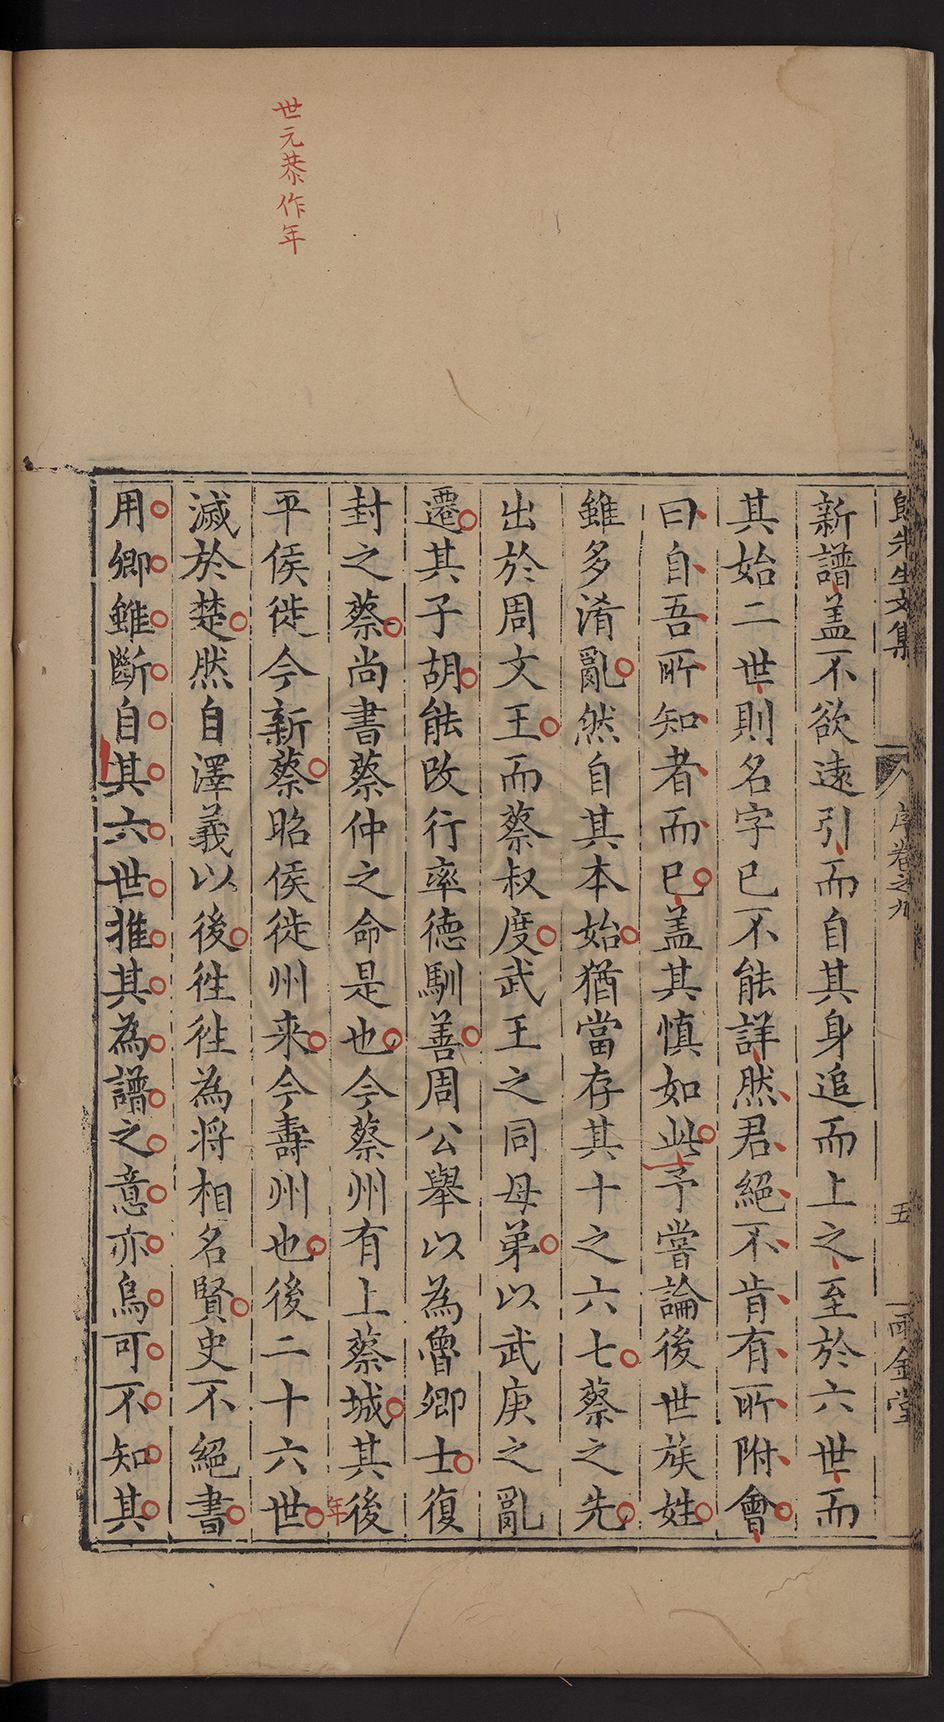 歸先生文集
序卷之九
五
雨金堂
新譜盖不欲遠引而自其身追而上之至於六世而
其始二世則名字已不能詳然君絕不肯有所附會
曰自吾所知者而已盖其慎如此予嘗論後世族姓
雖多淆亂然自其本始猶當存其十之六七蔡之先
出於周文王而蔡叔度武王之同母弟以武庚之亂
遷其子胡能改行率德馴善周公舉以為魯卿士復
封之蔡尚書蔡仲之命是也今蔡州有上蔡城其後
平侯徙今新蔡昭侯徙州来今壽州也後二十六世
年
滅於楚然自澤義以後徃徃為将相名賢史不絕書
用卿雖斷自其六世推其為譜之意亦烏可不知其
世元恭作年